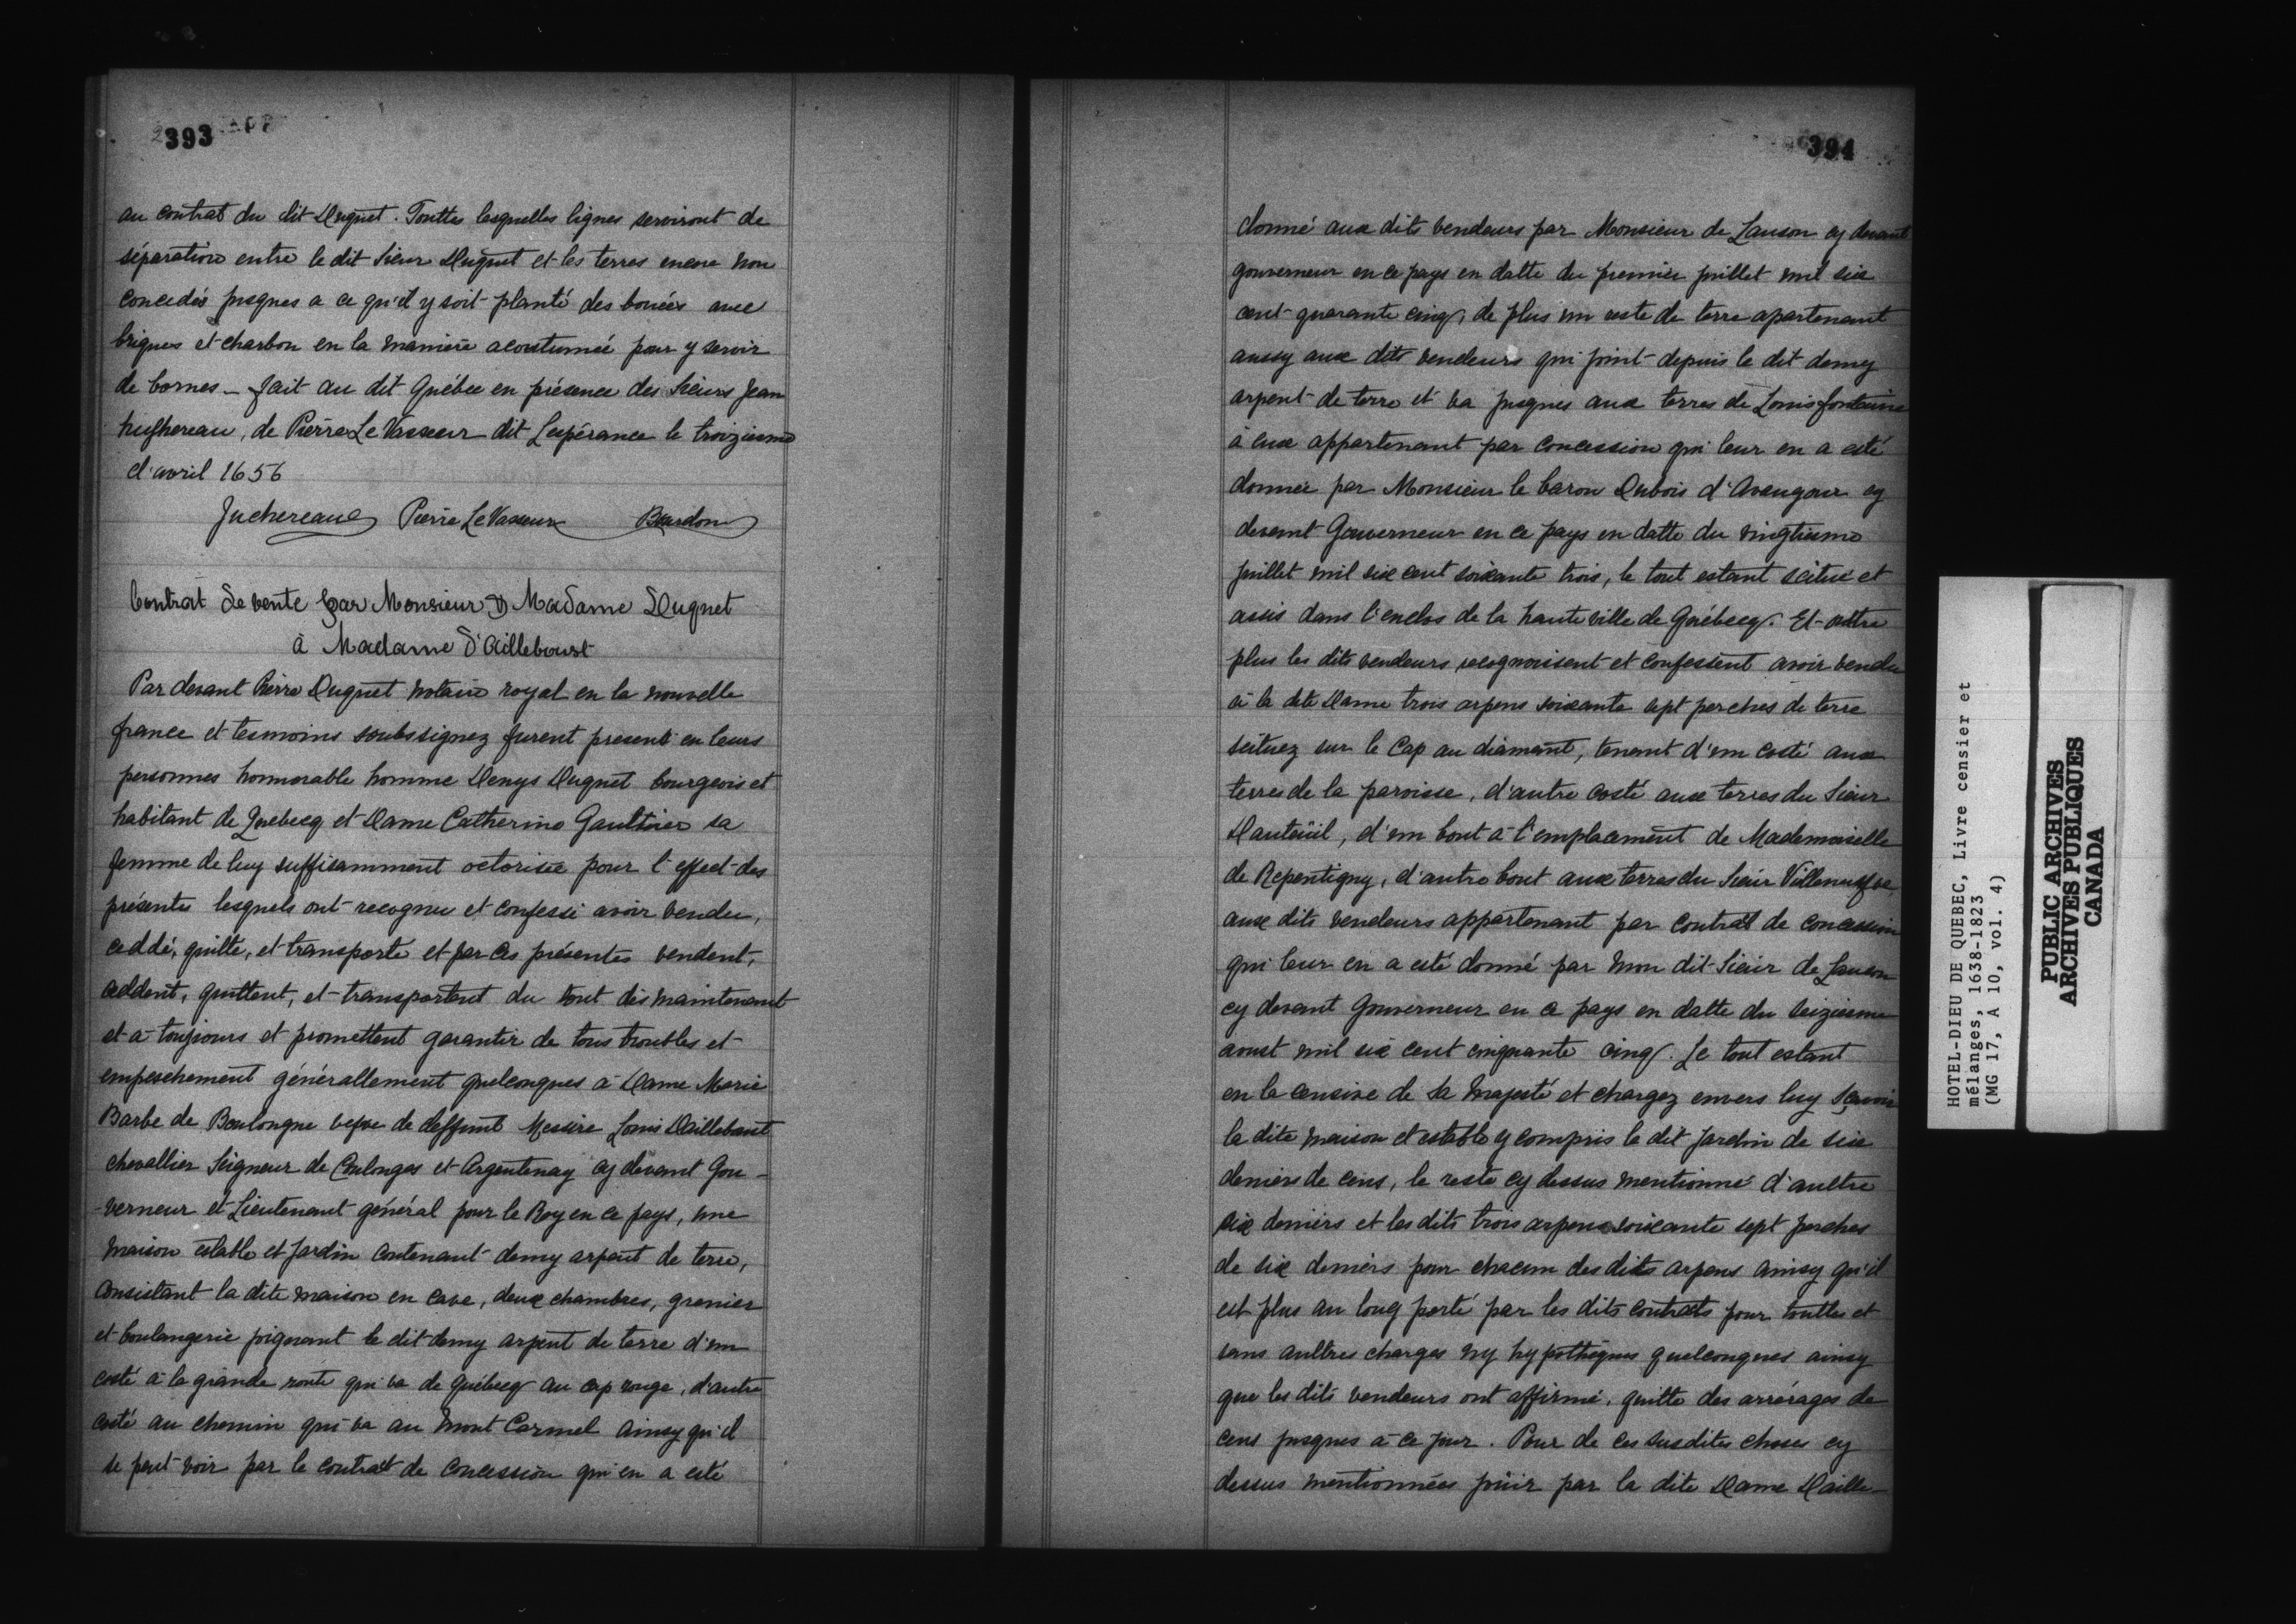 393
au contrat du dit Duquet. Touttes lesquelles lignes serviront de
séparation entre le dit Sieur Duquet et les terres encore non
concedées jusques a ce qu'il y soit planté des bornes avec
briques et charbon en la manière acoutumée pour y servir
de bornes _ fait au dit Québec en présence des Sieurs Jean
Juchereau, de Pierre Le Vasseur dit Lespérance le troiziesme
d'avril 1656
Juchereau Pierre Le Vasseur Bourdon
Contrat de vente par Monsieur & Madame Duquet
à Madame D'Ailleboust
Par devant Pierre Duquet Notaire royal en la nouvelle
france et tesmoins soubssignez furent presents en leurs
personnes honnorable homme Denys Duquet bourgeois et
habitant de Quebecq et Dame Catherine Gaultier sa
femme de luy suffisamment octorisée pour l'effect des
présentes lesquels ont recognu et confessé avoir vendu,
ceddé, quitté, et transporté et par ces présentes vendent,
ceddent, quittent, et transportent du tout dès maintenant
et a toujours et promettent garantir de tous troubles et
empeschement générallement quelconques à Dame Marie
Barbe de Boulongne vefve de deffunt Messire Louis Dailleboust
chevallier Seigneur de Coulonges et Argentenay cy devant Gou-
-verneur et Lieutenant général pour le Roy en ce pays, une
maison estable et Jardin contenant demy arpent de terre,
consistant la dite maison en cave, deux chambres, grenier
et boulangerie joignant le dit demy arpent de terre d'un
costé à la grande route qui va de Québecq au cap rouge, d'autre
costé au chemin qui va au Mont Carmel ainsy qu'il
se peut voir par le contract de concession qui en a esté
394
donné aux dits vendeurs par Monsieur de Lauson cy devant
gouverneur en ce pays en datte du premier juillet mil six
cent quarante cinq, de plus un reste de terre apartenant
aussy aux dits vendeurs qui joint depuis le dit demy
arpent de terre et va jusques aux terres de Louis fontaine
à eux appartenant par concession qui leur en a esté
donnée par Monsieur le baron Dubois d'Avaugour cy
devant Gouverneur en ce pays en datte du vingtiesme
juillet mil six cent soixante trois, le tout estant scitué et
assis dans l'enclos de la haute ville de Québecq. Et outre
plus les dits vendeurs recognoissent et confessent avoir vendu
à la dite Dame trois arpens soixante sept perches de terre
scituez sur le Cap au diamant, tenant d'un costé aux
terres de la paroisse, d'autre costé aux terres du Sieur
Dauteüil, d'un bout à l'emplacement de Mademoiselle
de Repentigny, d'autre bout aux terres du Sieur Villeneufve
aux dits vendeurs appartenant par contrat de concession
qui leur en a esté donné par mon dit Sieur de Lauson
cy devant Gouverneur en ce pays en datte du seiziesme
aoust mil six cent cinquante cinq. Le tout estant
en la censive de Sa Majesté et chargez envers luy Sçavoir
la dite maison et estable y compris le dit Jardin de six
deniers de cens, le reste cy dessus mentionné d'aultre
six deniers et les dits trois arpens soixante sept perches
de six deniers pour chacun des dits arpens ainsy qu'il
est plus au long porté par les dits contrats pour touttes et
sans aultres charges ny hypothèques quelconques ainsy
que les dits vendeurs ont affirmé, quitte des arrérages de
cens jusques à ce jour. Pour de ces susdites choses cy
dessus mentionnées joüir par la dite Dame Daille-
HOTEL-DIEU DE QUEBEC, Livre censier et
mélanges, 1638-1823
(MG 17, A 10, vol. 4)
PUBLIC ARCHIVES
ARCHIVES PUBLIQUES
CANADA